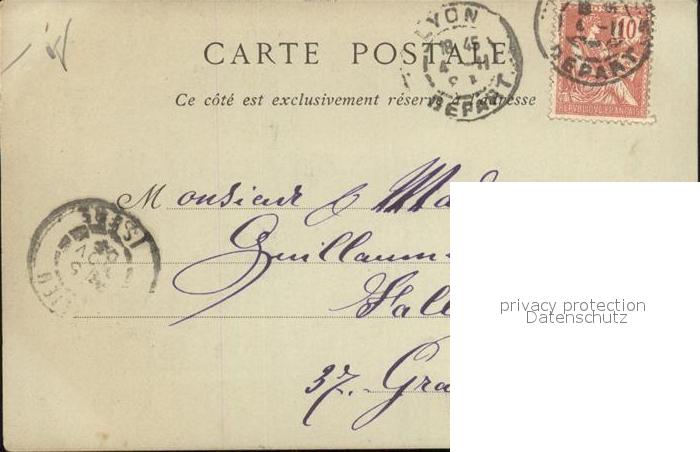 CARTE POSTALE
Ce côté est exclusivement réservé à l'adresse
LYON
18 45
4 -11
DEPART
10
REPUBLIQUE FRANÇAISE
DEPART
ISERE
Monsieur & Mad
Guillaum
37. Gra
privacy protection
Datenschutz